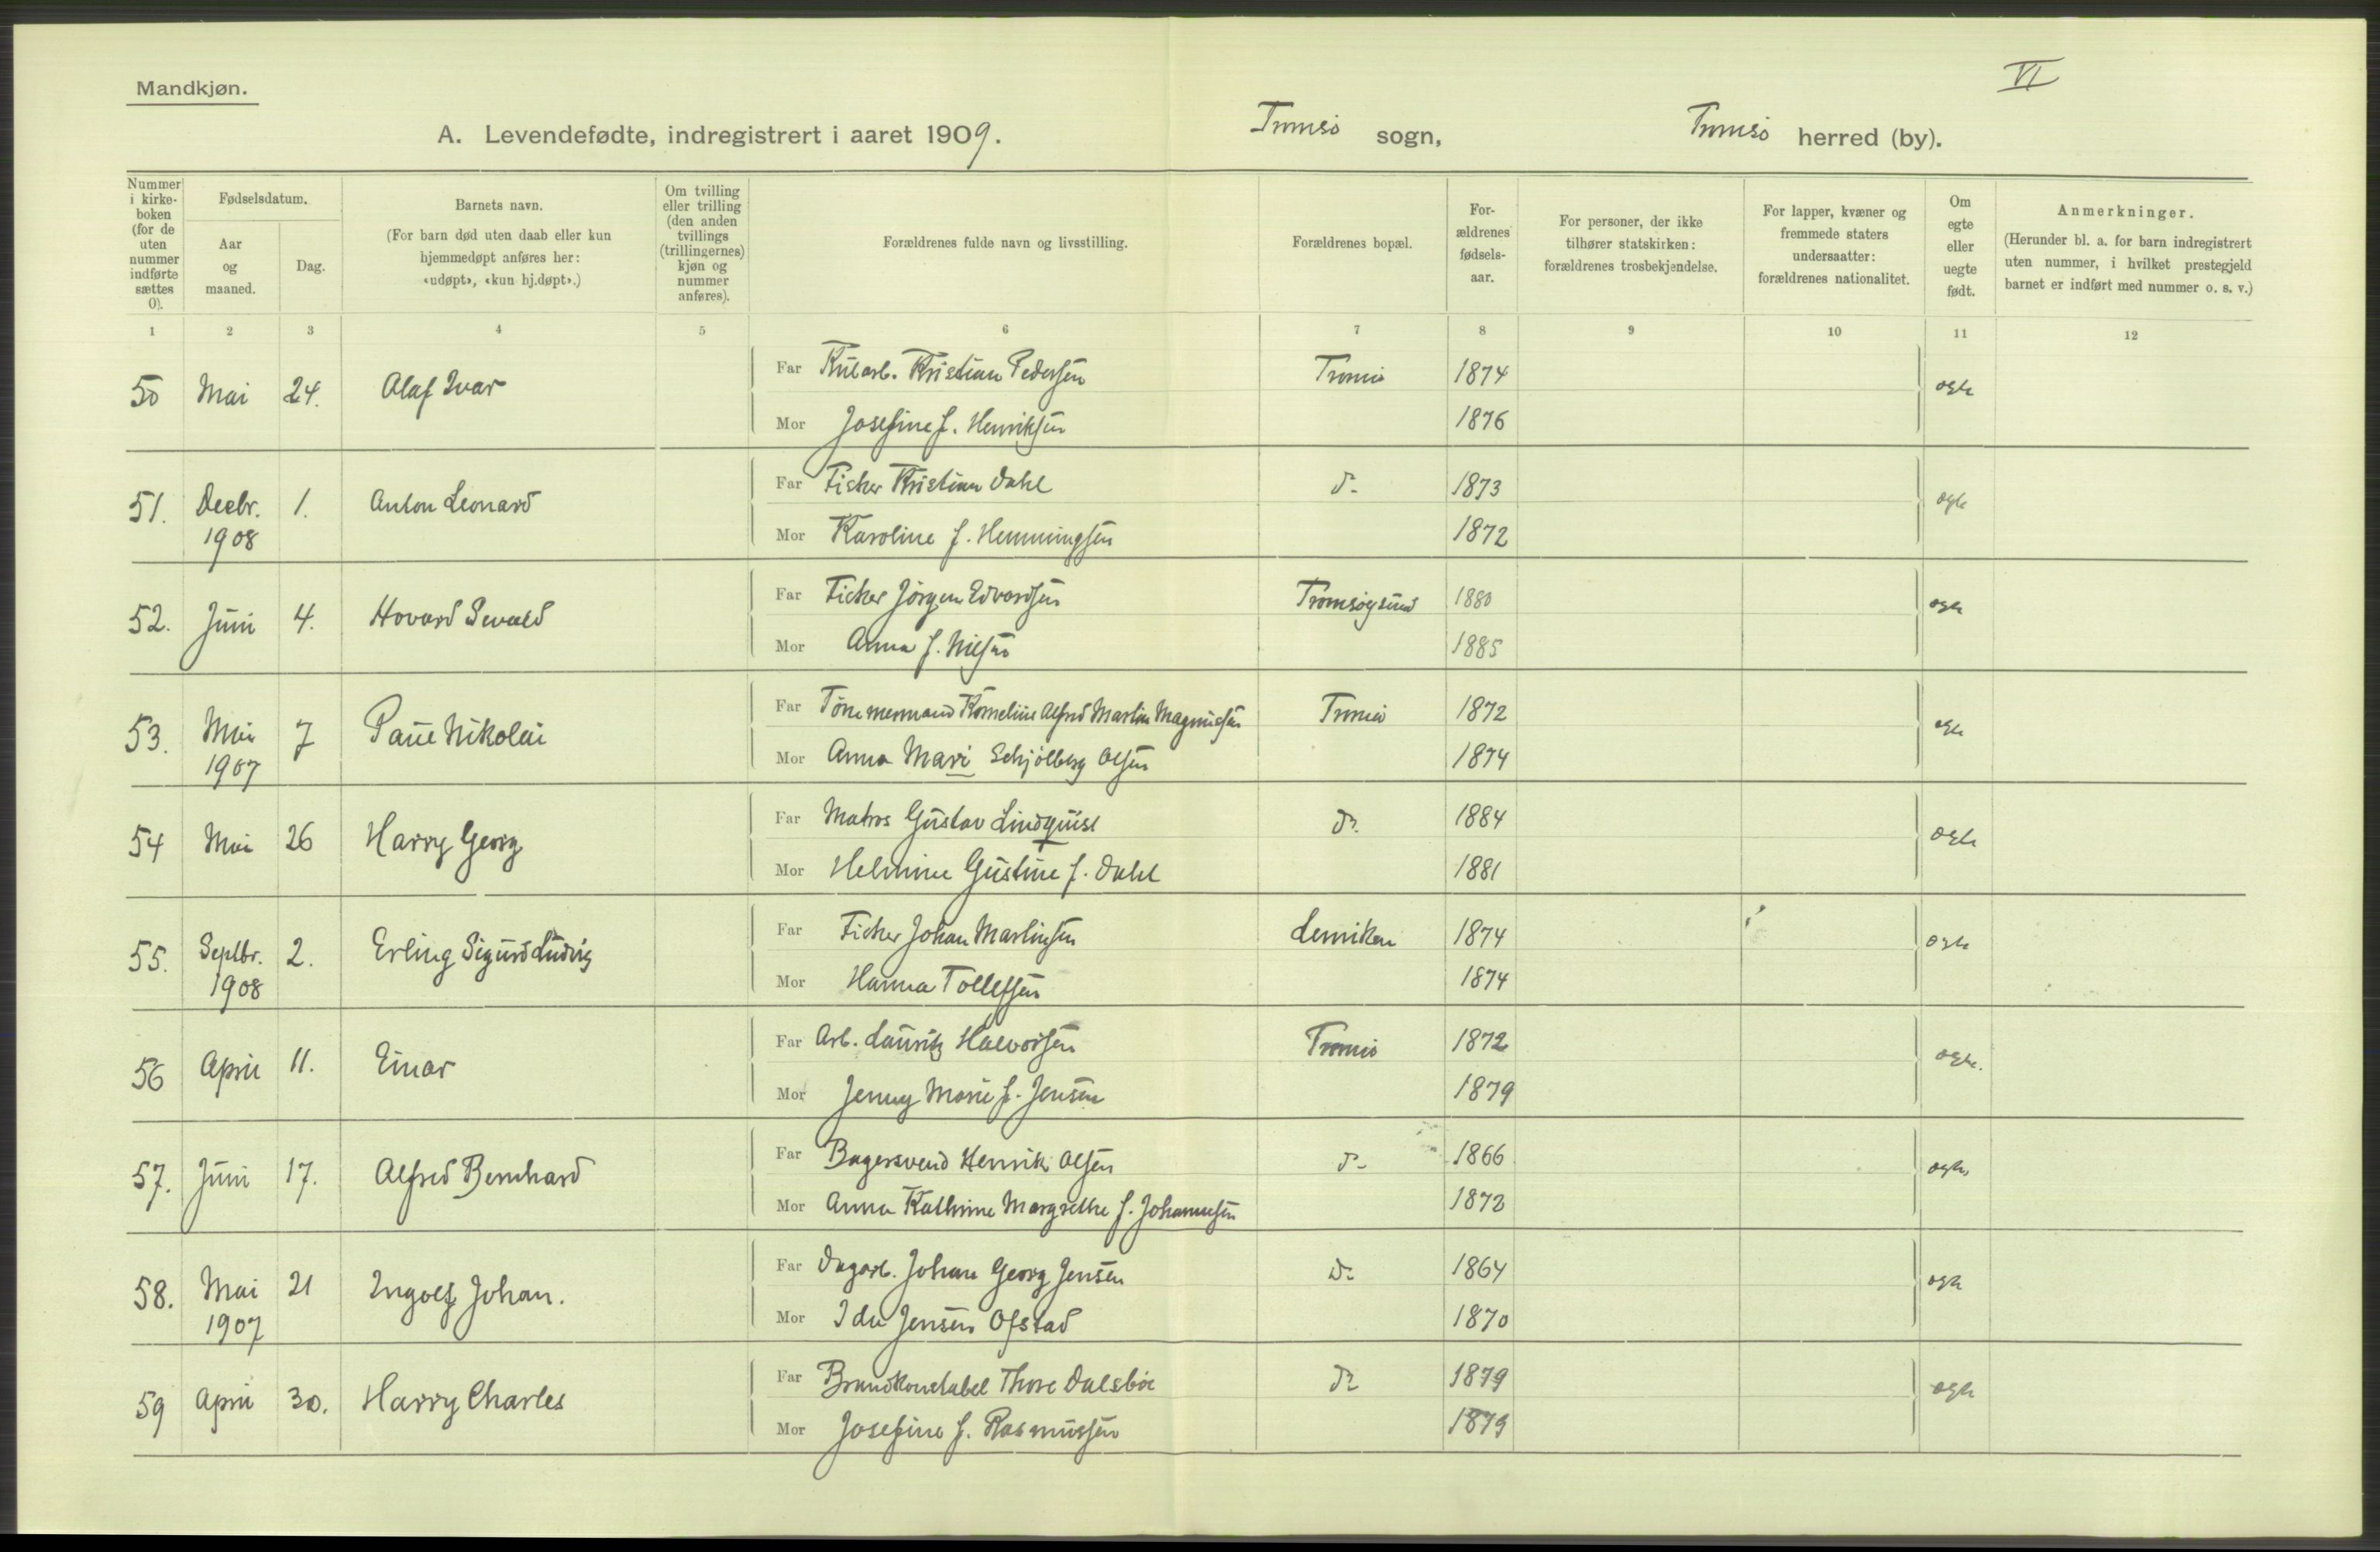 VI
Mandkjøn.
A. Levendefødte, indregistrert i aaret 1909. Tromsö sogn, Tromsö herred (by).
Nummer i kirke-boken (for de uten nummer indførte sættes 0).
Fødselsdatum.
Aar og maaned.
Dag.
Barnets navn.
(For barn død uten daab eller kun hjemmedøpt anføres her: «udøpt», «kun hj.døpt».)
Om tvilling eller trilling (den anden tvillings (trillingernes) kjøn og nummer anføres).
Forældrenes fulde navn og livsstilling.
Forældrenes bopæl.
For-ældrenes fødsels-aar.
For personer, der ikke tilhører statskirken: forældrenes trosbekjendelse.
For lapper, kvæner og fremmede staters undersaatter: forældrenes nationalitet.
Om egte eller uegte født.
Anmerkninger.
(Herunder bl. a. for barn indregistrert uten nummer, i hvilket prestegjeld barnet er indført med nummer o. s. v.)
1 2 3 4 5 6 7 8 9 10 11 12
50 Mai 24. Olaf Ivar Far Kularb. Kristian Pedersen Tromsö 1874 egte
Mor Josefine f. Henriksen 1876
51. Decbr. 1. Anton Leonard Far Fisker Kristian Dahl do 1873 egte
1908 Mor Karoline f. Hemmingsen 1872
52. Juni 4. Hovard Sevald Far Fisker Jörgen Edvardsen Tromsöysund 1880 egte
Mor Anna f. Nilsen 1885
53. Mai 7 Paul Nikolai Far Tömmermand Kornelius Alfred Martin Magnussen Tromsö 1872 egte
1907 Mor Anna Mari Schjölberg Olsen 1874
54 Mai 26 Harry Georg Far Matros Gustav Lindquist do. 1884 egte
Mor Helmine Gustine f. Dahl 1881
55. Septbr. 2. Erling Sigurd Ludvig Far Fisker Johan Martinsen Lenviken 1874 egte
1908 Mor Hanna Tollefsen 1874
56 April 11. Einar Far Arb. Lauritz Halvorsen Tromsö 1872 egte.
Mor Jenny Marie f. Jensen 1879
57. Juni 17. Alfred Bernhard Far Bagersvend Henrik Olsen do 1866 egte
Mor Anna Kathrine Margrethe f. Johannesen 1872
58. Mai 21 Ingolf Johan. Far Dagarb. Johan Georg Jensen do 1864 egte
1907 Mor Ida Jensen Ofstad 1870
59 April 30. Harry Charles Far Brandkonstabel Thore Dalsböe do 1879 egte
Mor Josefine f. Rasmussen 1879